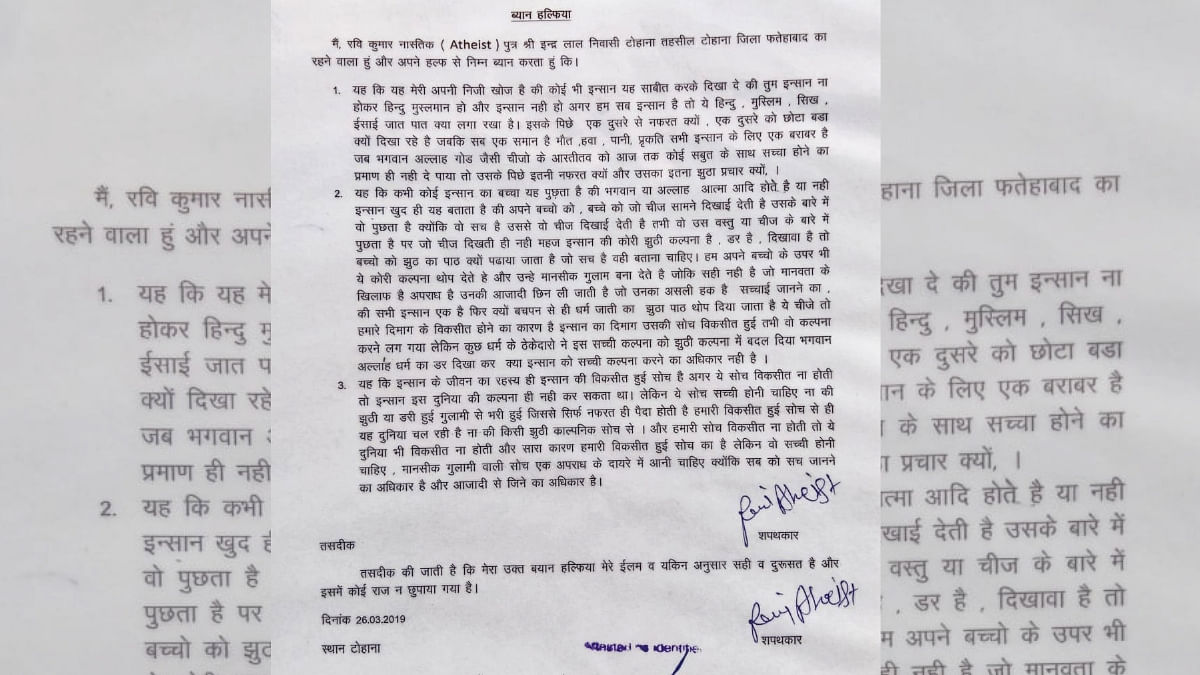 ब्यान हल्फिया
मैं, रवि कुमार नास्तिक ( Atheist ) पुत्र श्री इन्द्र लाल निवासी टोहाना तहसील टोहाना जिला फतेहाबाद का
रहने वाला हुं और अपने हल्फ से निम्न ब्यान करता हुं कि।
1. यह कि यह मेरी अपनी निजी खोज है की कोई भी इन्सान यह साबीत करके दिखा दे की तुम इन्सान ना
होकर हिन्दु मुस्लमान हो और इन्सान नही हो अगर हम सब इन्सान है तो ये हिन्दु , मुस्लिम , सिख ,
ईसाई जात पात क्या लगा रखा है। इसके पिछे एक दुसरे से नफरत क्यों , एक दुसरे को छोटा बडा
क्यों दिखा रहे है जबकि सब एक समान है मौत ,हवा , पानी, प्रृकति सभी इन्सान के लिए एक बराबर है
जब भगवान अल्लाह गोड जैसी चीजो के आस्तीतव को आज तक कोई सबुत के साथ सच्चा होने का
प्रमाण ही नही दे पाया तो उसके पिछे इतनी नफरत क्यों और उसका इतना झुठा प्रचार क्यों, ।
2. यह कि कभी कोई इन्सान का बच्चा यह पुछता है की भगवान या अल्लाह आत्मा आदि होते है या नही
इन्सान खुद ही यह बताता है की अपने बच्चो को , बच्चे को जो चीज सामने दिखाई देती है उसके बारे में
वो पुछता है क्योंकि वो सच है उससे वो चीज दिखाई देती है तभी वो उस वस्तु या चीज के बारे में
पुछता है पर जो चीज दिखती ही नही महज इन्सान की कोरी झुठी कल्पना है , डर है , दिखावा है तो
बच्चो को झुठ का पाठ क्यों पढाया जाता है जो सच है वही बताना चाहिए। हम अपने बच्चो के उपर भी
ये कोरी कल्पना थोप देते हे और उन्हे मानसीक गुलाम बना देते है जोकि सही नही है जो मानवता के
खिलाफ है अपराध है उनकी आजादी छिन ली जाती है जो उनका असली हक है सच्चाई जानने का ,
की सभी इन्सान एक है फिर क्यों बचपन से ही धर्म जाती का झुठा पाठ थोप दिया जाता है ये चीजे तो
हमारे दिमाग के विकसीत होने का कारण है इन्सान का दिमाग उसकी सोच विकसीत हुई तभी वो कल्पना
करने लग गया लेकिन कुछ धर्म के ठेकेदारो ने इस सच्ची कल्पना को झुठी कल्पना में बदल दिया भगवान
अल्लाह धर्म का डर दिखा कर क्या इन्सान को सच्ची कल्पना करने का अधिकार नही है ।
3. यह कि इन्सान के जीवन का रहस्य ही इन्सान की विकसीत हुई सोच है अगर ये सोच विकसीत ना होती
तो इन्सान इस दुनिया की कल्पना ही नही कर सकता था। लेकिन ये सोच सच्ची होनी चाहिए ना की
झुठी या डरी हुई गुलामी से भरी हुई जिससे सिर्फ नफरत ही पैदा होती है हमारी विकसीत हुई सोच से ही
यह दुनिया चल रही है ना की किसी झुठी काल्पनिक सोच से । और हमारी सोच विकसीत ना होती तो ये
दुनिया भी विकसीत ना होती और सारा कारण हमारी विकसीत हुई सोच का है लेकिन वो सच्ची होनी
चाहिए , मानसीक गुलामी वाली सोच एक अपराध के दायरे में आनी चाहिए क्योंकि सब को सच जानने
का अधिकार है और आजादी से जिने का अधिकार है।
Ravi Atheist
शपथकार
तसदीक
तसदीक की जाती है कि मेरा उक्त बयान हल्फिया मेरे ईलम व यकिन अनुसार सही व दुरूसत है और
इसमें कोई राज न छुपाया गया है।
Ravi Atheist
दिनांक 26.03.2019
शपथकार
स्थान टोहाना
मैं, रवि कुमार नास
रहने वाला हुं और अपने
1. यह कि यह मे
होकर हिन्दु मु
ईसाई जात प
क्यों दिखा रहे
जब भगवान
प्रमाण ही नही
2. यह कि कभी
इन्सान खुद ह
वो पुछता है
पुछता है पर
बच्चो को झुठ
हाना जिला फतेहाबाद का
दिखा दे की तुम इन्सान ना
हिन्दु , मुस्लिम , सिख ,
एक दुसरे को छोटा बडा
न के लिए एक बराबर है
के साथ सच्चा होने का
ा प्रचार क्यों, ।
त्मा आदि होते है या नही
खाई देती है उसके बारे में
वस्तु या चीज के बारे में
, डर है , दिखावा है तो
म अपने बच्चो के उपर भी
ही नही है जो मानवता के